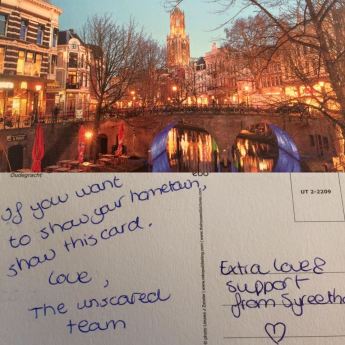 Oudegracht
UT 2-2209
If you want
to show your hometown,
show this card.
Love,
The unscared
team
Extra love &
support
from Syreetha